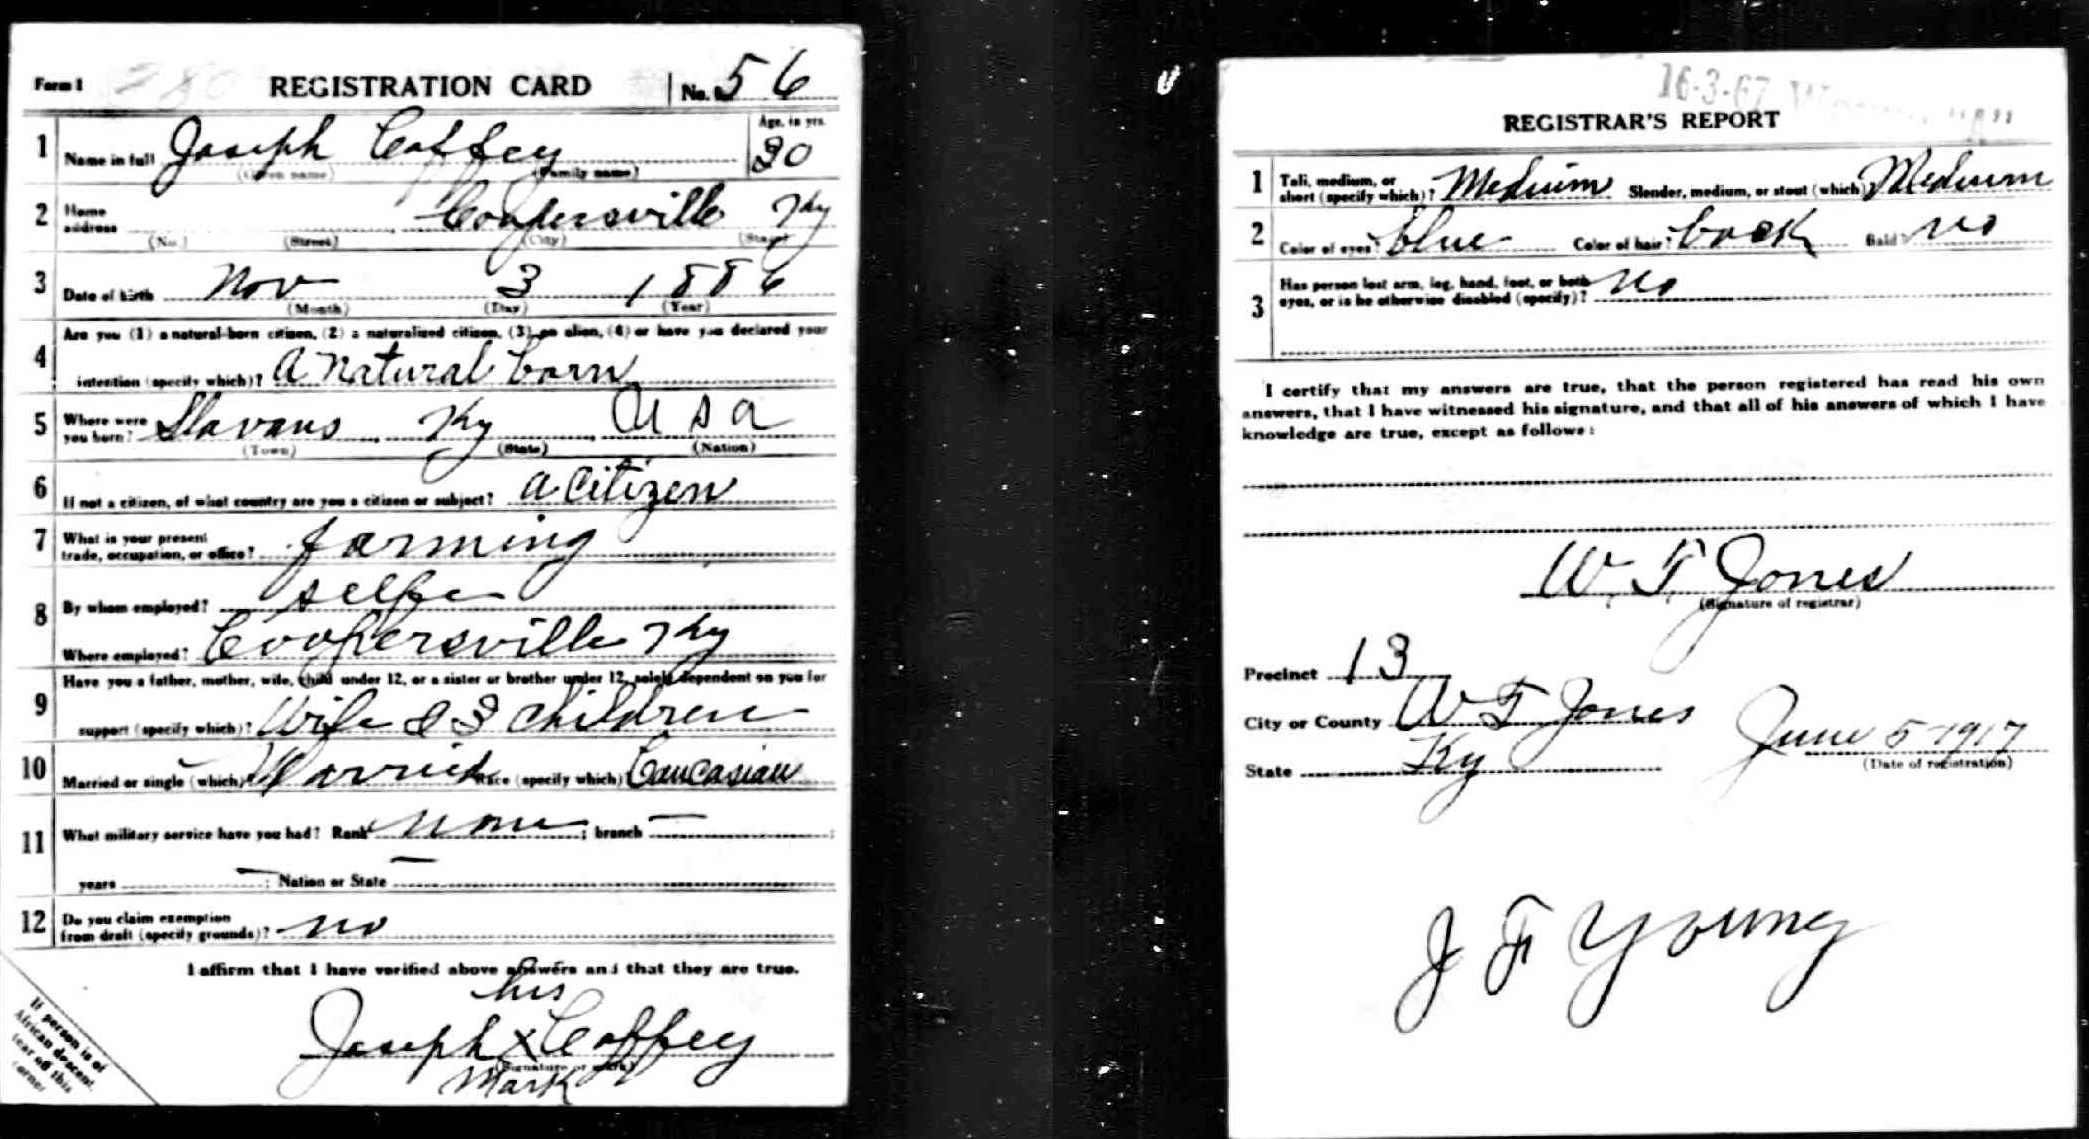 Form 1 280 REGISTRATION CARD No. 56
1 Name in full Joseph Coffey Age, in yrs. 30
(Given name) (Family name)
2 Home address Coopersville Ky
(No.) (Street) (City) (State)
3 Date of birth Nov 3 1886
(Month) (Day) (Year)
4 Are you (1) a natural-born citizen, (2) a naturalized citizen, (3) an alien, (4) or have you declared your
intention (specify which)? A natural born
5 Where were you born? Slavans Ky USA
(Town) (State) (Nation)
6 If not a citizen, of what country are you a citizen or subject? a citizen
7 What is your present
trade, occupation, or office? farming
8 By whom employed? selfe
Where employed? Coopersville Ky
9 Have you a father, mother, wife, child under 12, or a sister or brother under 12, solely dependent on you for
support (specify which)? Wife & 3 children
10 Married or single (which)? Married Race (specify which)? Caucasian
11 What military service have you had? Rank none ; branch — ;
years — ; Nation or State —
12 Do you claim exemption
from draft (specify grounds)? no
I affirm that I have verified above answers and that they are true.
his
Joseph X Coffey
(Signature or mark)
mark
If person is of
African descent,
tear off this
corner
16-3-67
REGISTRAR'S REPORT
1 Tall, medium, or
short (specify which)? Medium Slender, medium, or stout (which)? Medium
2 Color of eyes? blue Color of hair? back Bald? no
3 Has person lost arm, leg, hand, foot, or both
eyes, or is he otherwise disabled (specify)? no
I certify that my answers are true, that the person registered has read his own
answers, that I have witnessed his signature, and that all of his answers of which I have
knowledge are true, except as follows:
W. T. Jones
(Signature of registrar)
Precinct 13
City or County W T Jones June 5-1917
State Ky (Date of registration)
J F Young